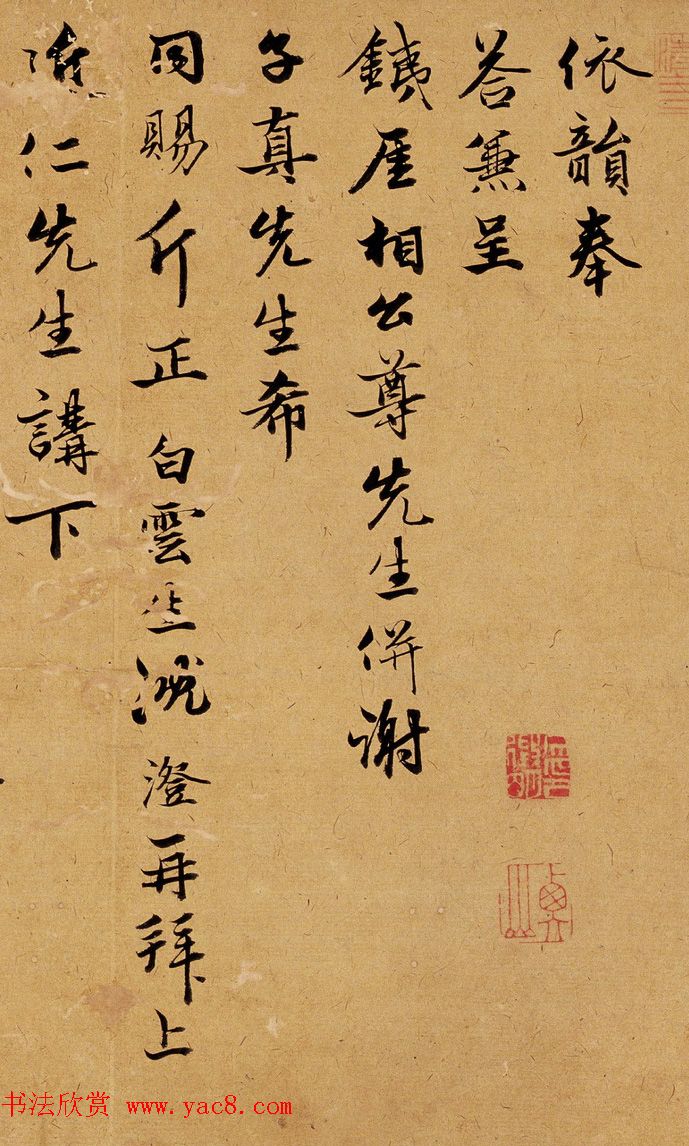 依韻奉
荅兼呈
銕厓相公尊先生併謝
子真先生希
同賜斤正 白雲生沈澄再拜上
仁先生講下
书法欣赏 www.yac8.com